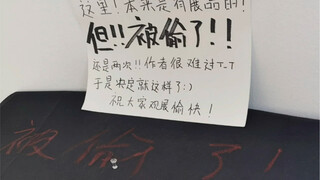 这里！本来是有展品的！
但！！被偷了！！
还是两次！！作者很难过T_T
于是决定就这样了:)
祝大家观展偷快！
被偷了！